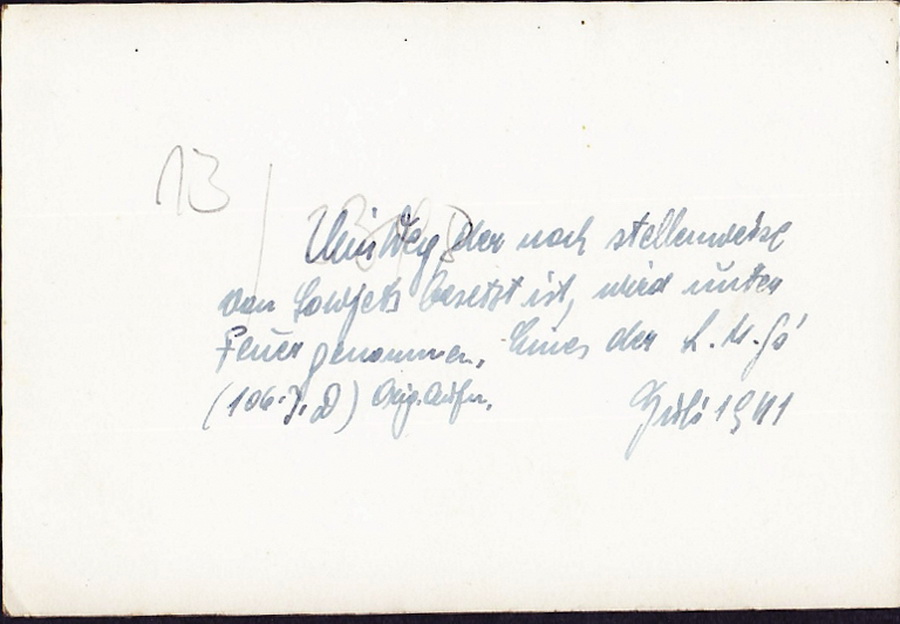 13
Ein Weg der noch stellenweise
von Sowjets besetzt ist, wird unter
Feuer genommen. Eines der L.M.Gs'
(106.J.D) Orig. Aufn.
Juli 1941